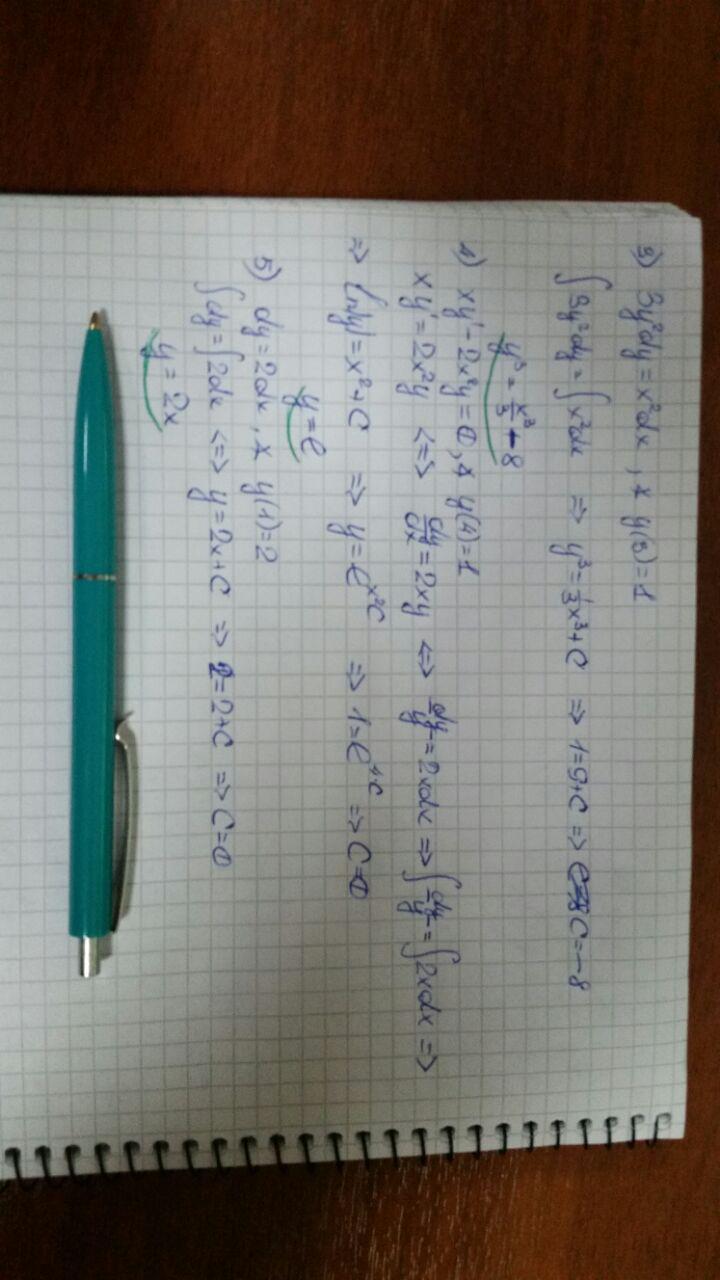 3) 3y²dy = x²dx, * y(3)=1
∫3y²dy = ∫x²dx => y³ = 1/3 x³ + C => 1 = 9 + C => C = -8
y³ = x³/3 - 8
4) xy' - 2x²y = 0, * y(1)=1
xy' = 2x²y <=> dy/dx = 2xy <=> dy/y = 2xdx => ∫dy/y = ∫2xdx =>
=> ln|y| = x² + C => y = e^(x²C) => 1 = e^(1·C) => C = 0
y = e
5) dy = 2dx, * y(1)=2
∫dy = ∫2dx <=> y = 2x + C => 2 = 2 + C => C = 0
y = 2x